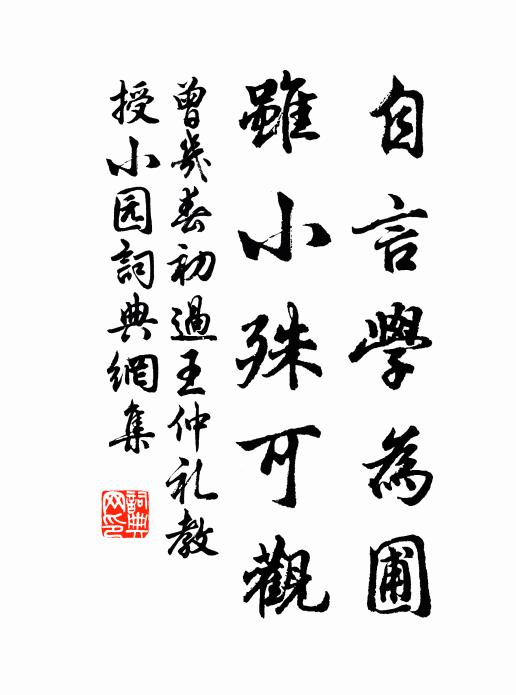 自言學為圃
雖小殊可觀
曾幾春初過王仲礼教
授小园詞典網集
詞典網印